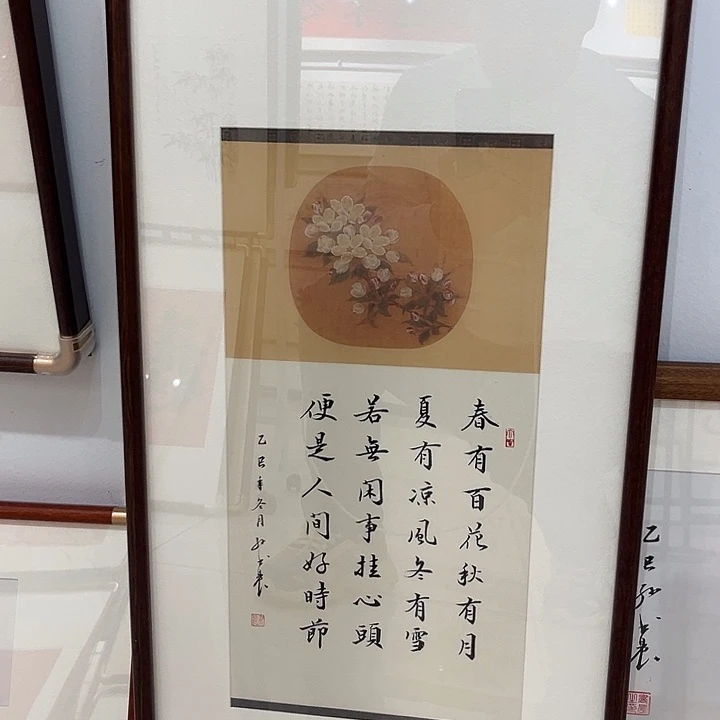 春有百花秋有月
夏有凉風冬有雪
若無閑事挂心頭
便是人间好時節
乙巳年冬月
乙巳